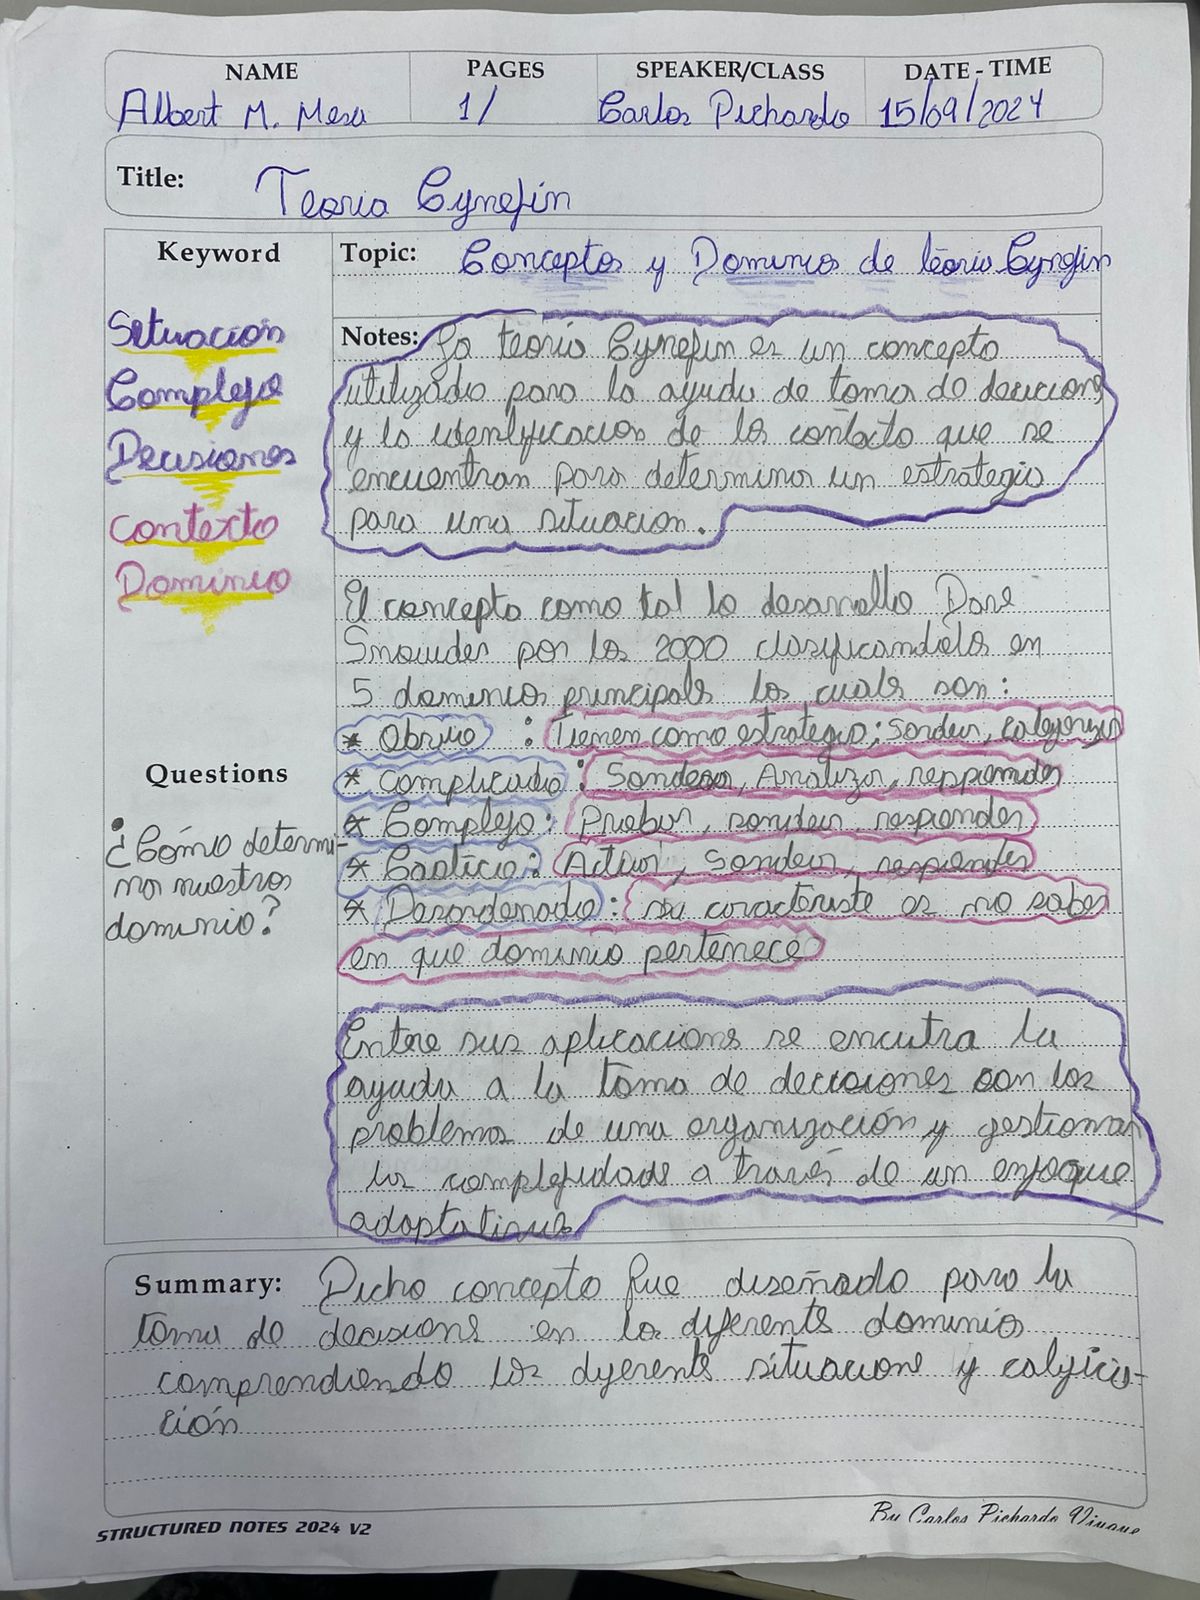 NAME PAGES SPEAKER/CLASS DATE - TIME
Albert M. Mesa 1/ Carlos Pichardo 15/09/2024
Title: Teoria Cynefin
Keyword
Situacion
Complejo
Decisiones
Contexto
Dominio
Questions
¿Cómo determi-
no nuestros
dominio?
Topic: Conceptos y Dominios de teoria Cynefin
Notes: La teoria Cynefin es un concepto
utilizado para la ayuda de toma de decicions
y la identificacion de los contexto que se
encuentran para determinar un estrategia
para una situacion.
El concepto como tal lo desarrollo Dave
Snowden por los 2000 clasificandolo en
5 dominios principals los cuals son:
* Obvio : Tienen como estrategia; Sondear, categorizar
* Complicado: Sondear, Analizar, responder
* Complejo: Probar, sondear, responder
* Caotico: Actuar, Sondear, responder
* Desordenado: su caracteriste es no saber
en que dominio pertenece
Entre sus aplicacions se encutra la
ayuda a la toma de decisiones con los
problemas de una organización y gestionar
las complejidads a través de un enfoque
adaptativa
Summary: Dicho concepto fue diseñado para la
toma de decisions en los diferents dominio
comprendiendo los diferents situacions y
ción
STRUCTURED NOTES 2024 V2
By Carlos Pichardo Viuque